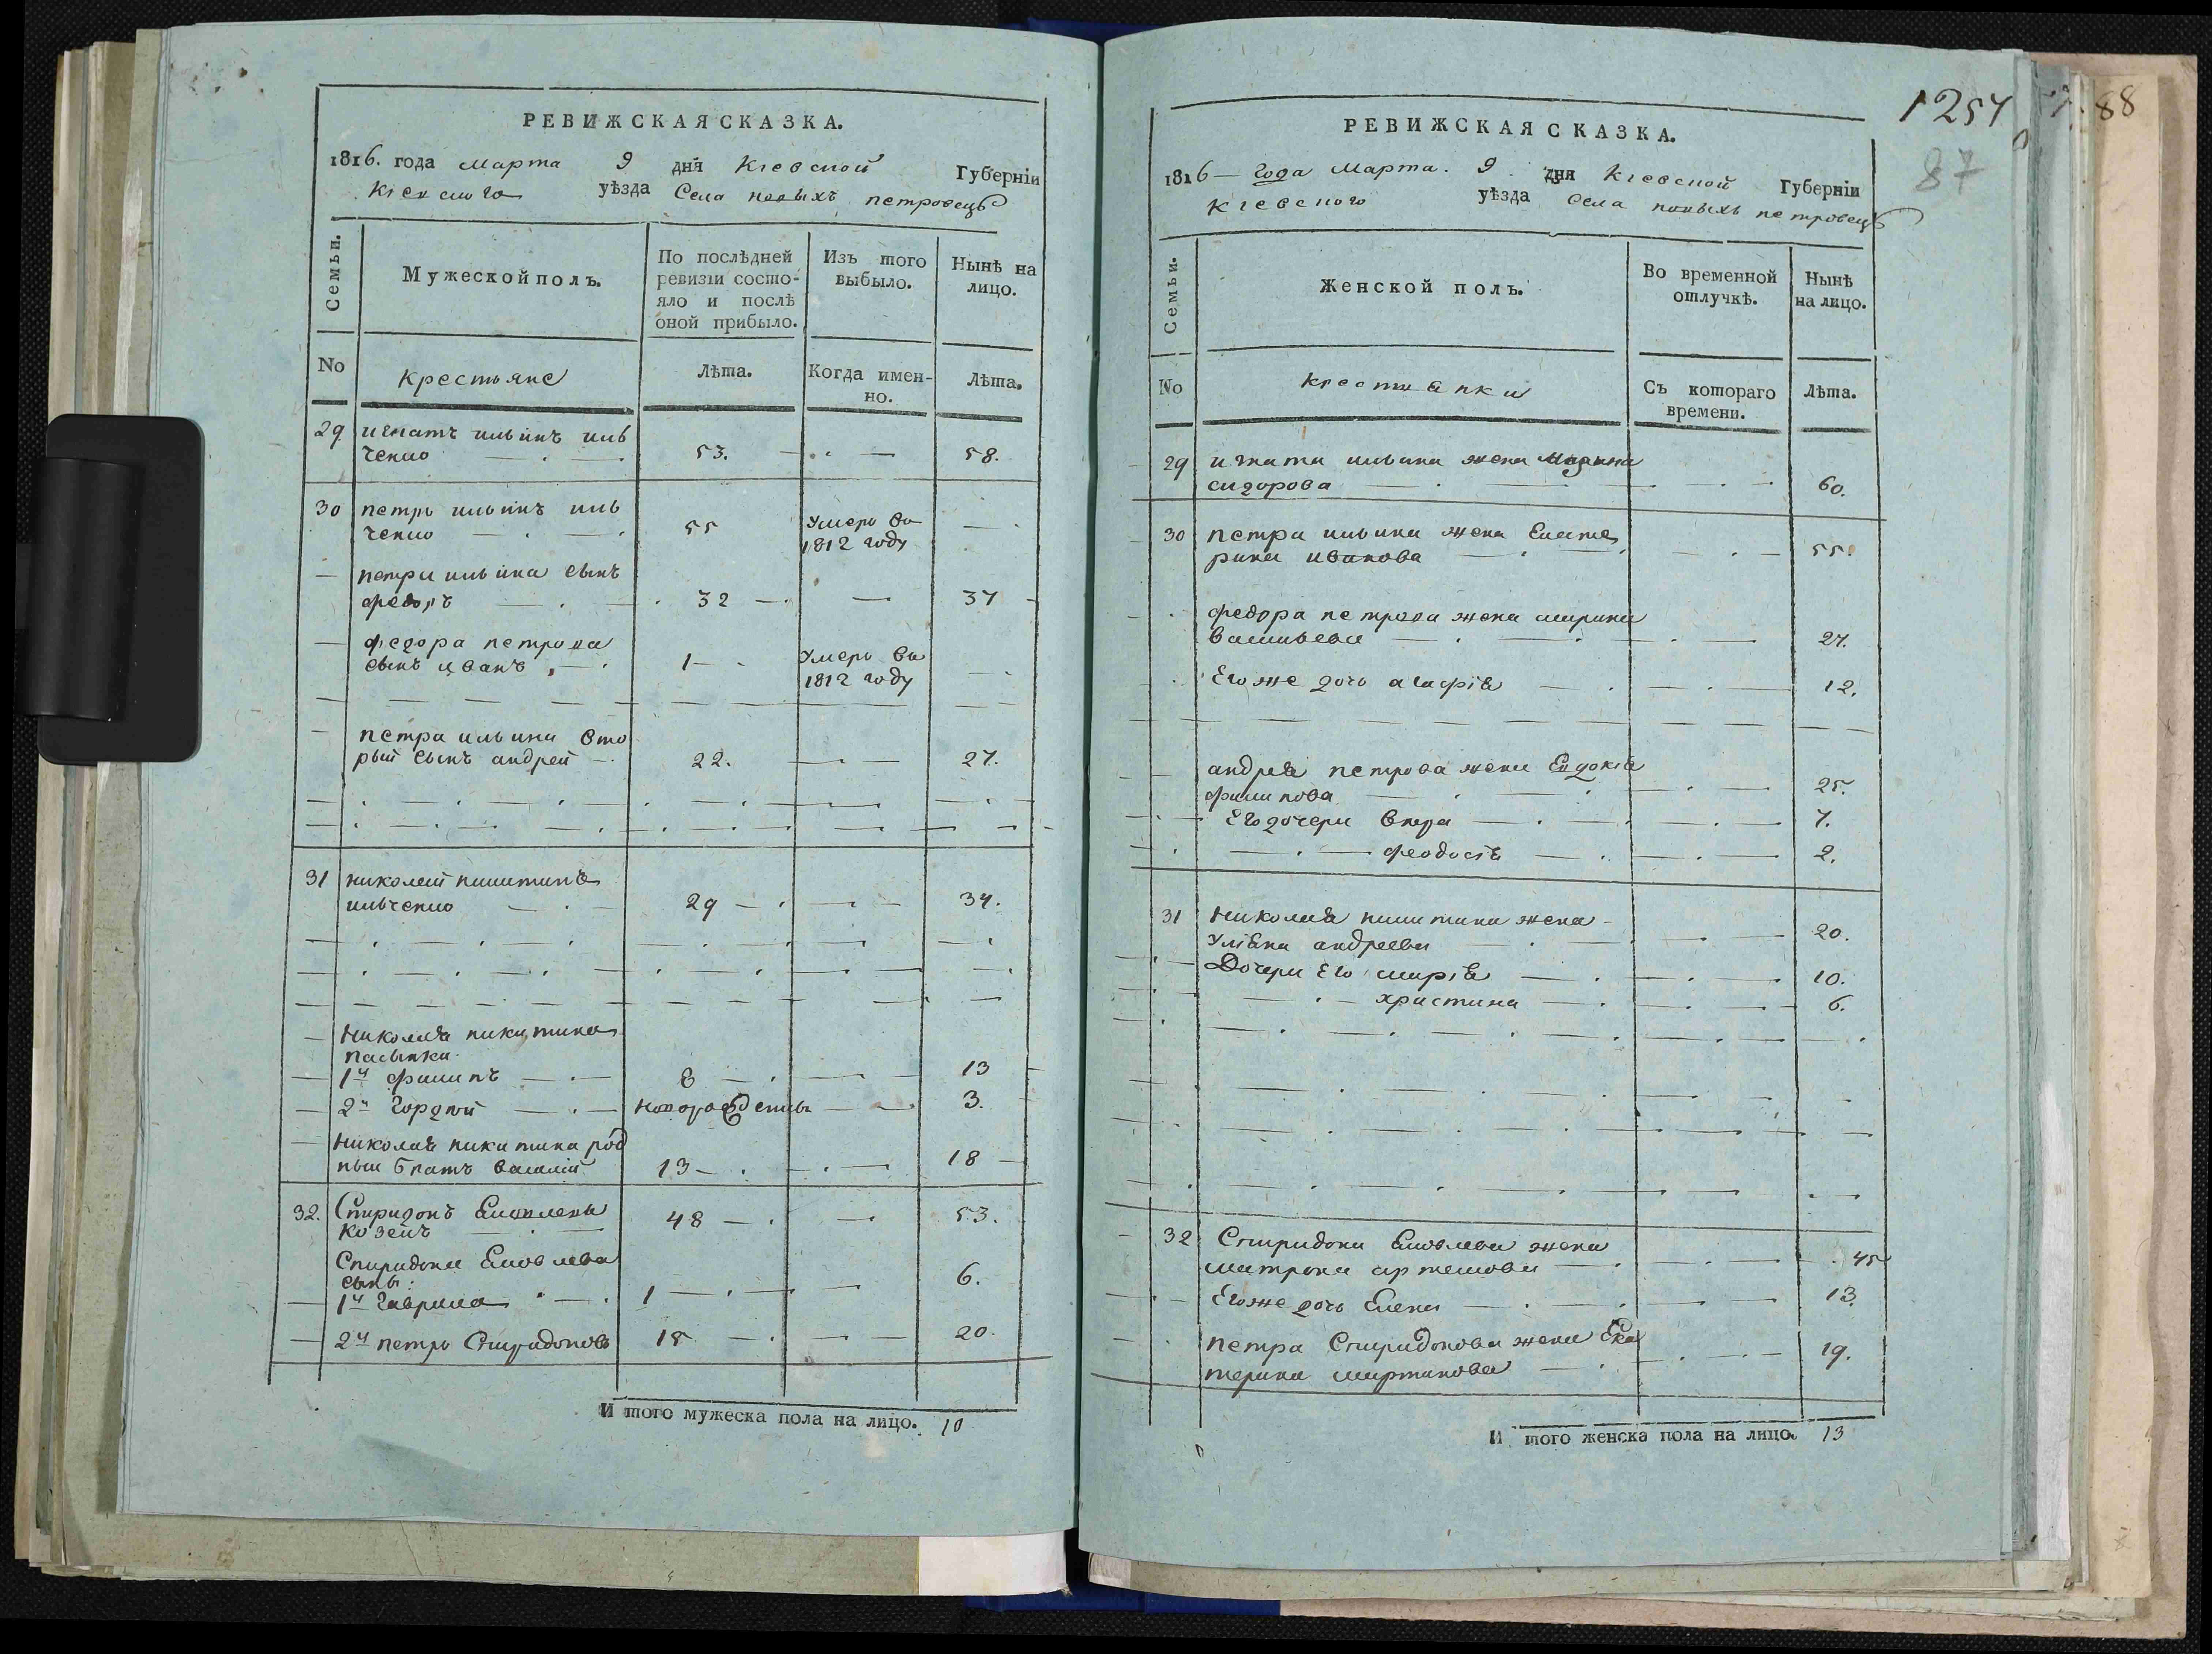 РЕВИЖСКАЯ СКАЗКА.
1816. года марта 9 дня Кіевской Губерніи
Кіевского уѣзда Села новыхъ петровецъ
Семьи.
Мужеской полъ.
По послѣдней ревизіи состо-
яло и послѣ
оной прибыло.
Изъ того
выбыло.
Нынѣ на
лицо.
No
крестьяне
Лѣта.
Когда имен-
но.
Лѣта.
29 игнатъ ильинъ иль
ченко 53. 58.
30 петръ ильинъ иль
ченко 55 Умеръ въ
1812 году
петра ильина сынъ
федоръ 32 37
федора петрова
сынъ иванъ 1 Умеръ въ
1812 году
петра ильина вто
рый сынъ андрей 22. 27.
31 николай никитинъ
ильченко 29 34.
николая никитина
пасынки
1й филипъ 8 13
2й гордѣй новорожденъ 3.
николая никитина род
ный братъ василій 13 18
32. Спиридонъ Яковлевъ
козелъ 48 53.
Спиридона Яковлева
сынъ:
1й гаврила 1 6.
2й петръ Спиридоновъ 15 20.
И того мужеска пола на лицо. 10
1257
88
87
РЕВИЖСКАЯ СКАЗКА.
1816 года марта. 9 дня Кіевской Губерніи
Кіевского уѣзда Села новыхъ петровецъ
Семьи.
Женской полъ.
Во временной
отлучкѣ.
Нынѣ
на лицо.
No
крестьянки
Съ котораго
времени.
Лѣта.
29 игната ильина жена марина
сидорова 60.
30 петра ильина жена Екате
рина иванова 55.
федора петрова жена марина
васильева 27.
Его же дочь агафія 12.
андрея петрова жена Евдокія
филипова 25.
Его дочери вѣра 7.
феодосія 2.
31 николая никитина жена
Уліяна андреева 20.
Дочери Его марія 10.
христина 6.
32 Спиридона Яковлева жена
матрона артемова 45
Его же дочь Елена 13.
петра Спиридонова жена Ека
терина мартинова 19.
И того женска пола на лицо. 13